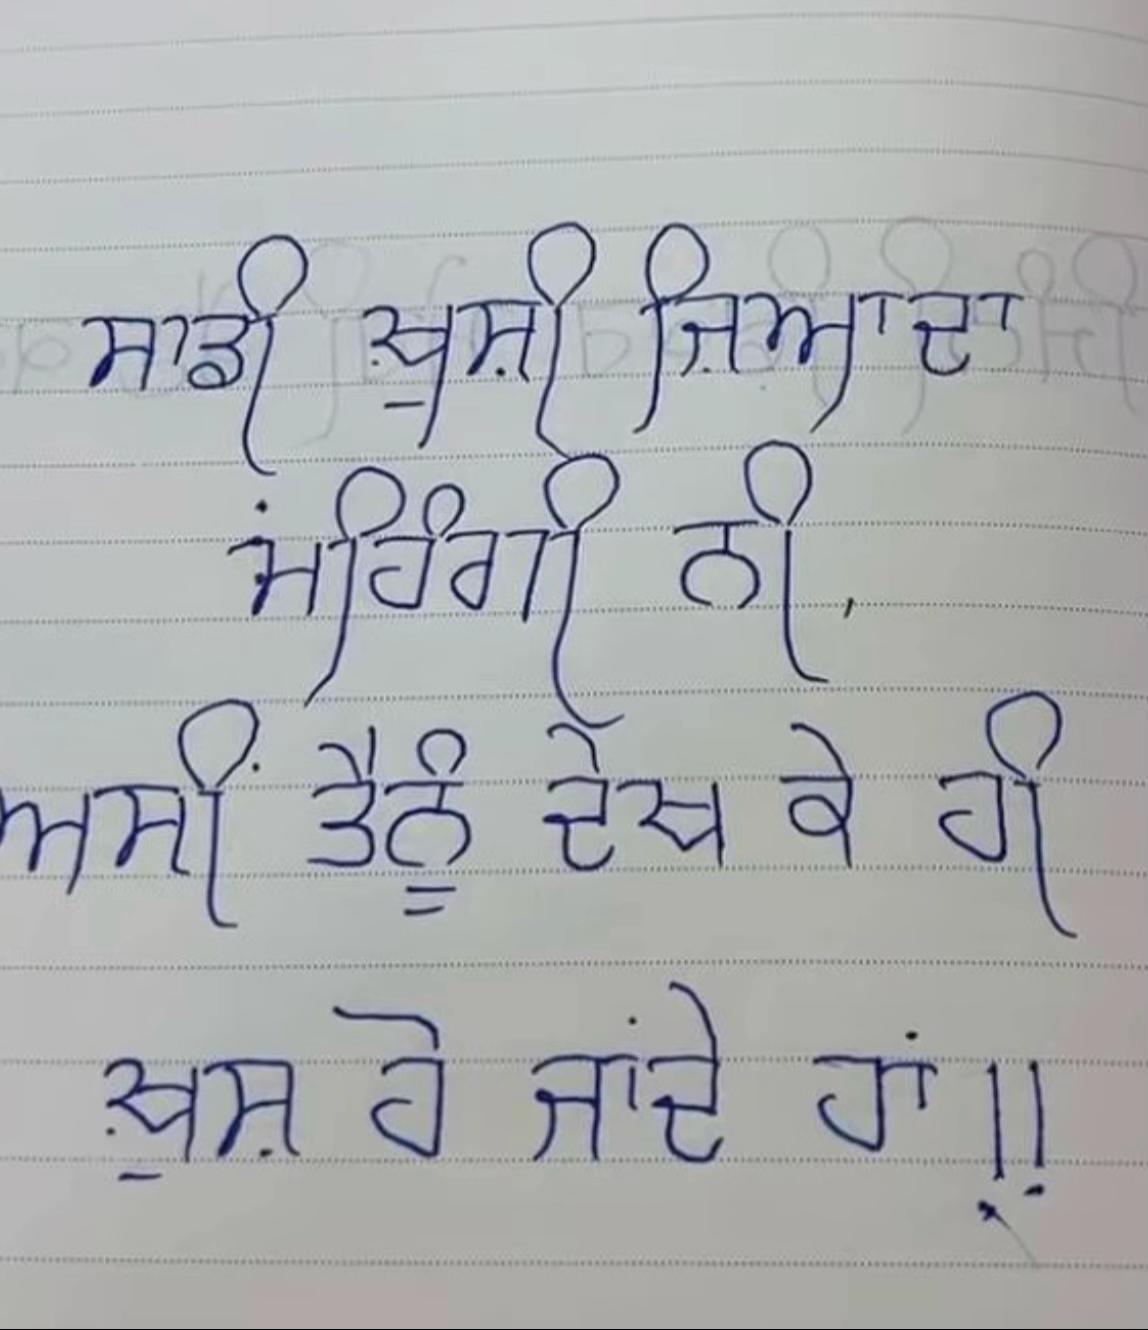 ਸਾਡੀ ਖ਼ੁਸ਼ੀ ਜ਼ਿਆਦਾ
ਮਹਿੰਗੀ ਨੀ,
ਅਸੀਂ ਤੈਨੂੰ ਦੇਖ ਕੇ ਹੀ
ਖ਼ੁਸ਼ ਹੋ ਜਾਂਦੇ ਹਾਂ!!